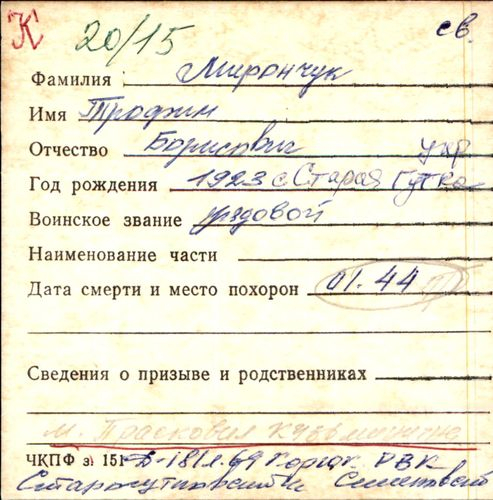 К 20/15 св.
Фамилия Мирончук
Имя Трофим
Отчество Борисович укр
Год рождения 1923 с. Старая Гутка
Воинское звание рядовой
Наименование части
Дата смерти и место похорон 01.44
Сведения о призыве и родственниках
м. Прасковия Кузьминична
ЧКПФ з. 151 Д-181 л. 69 РВК